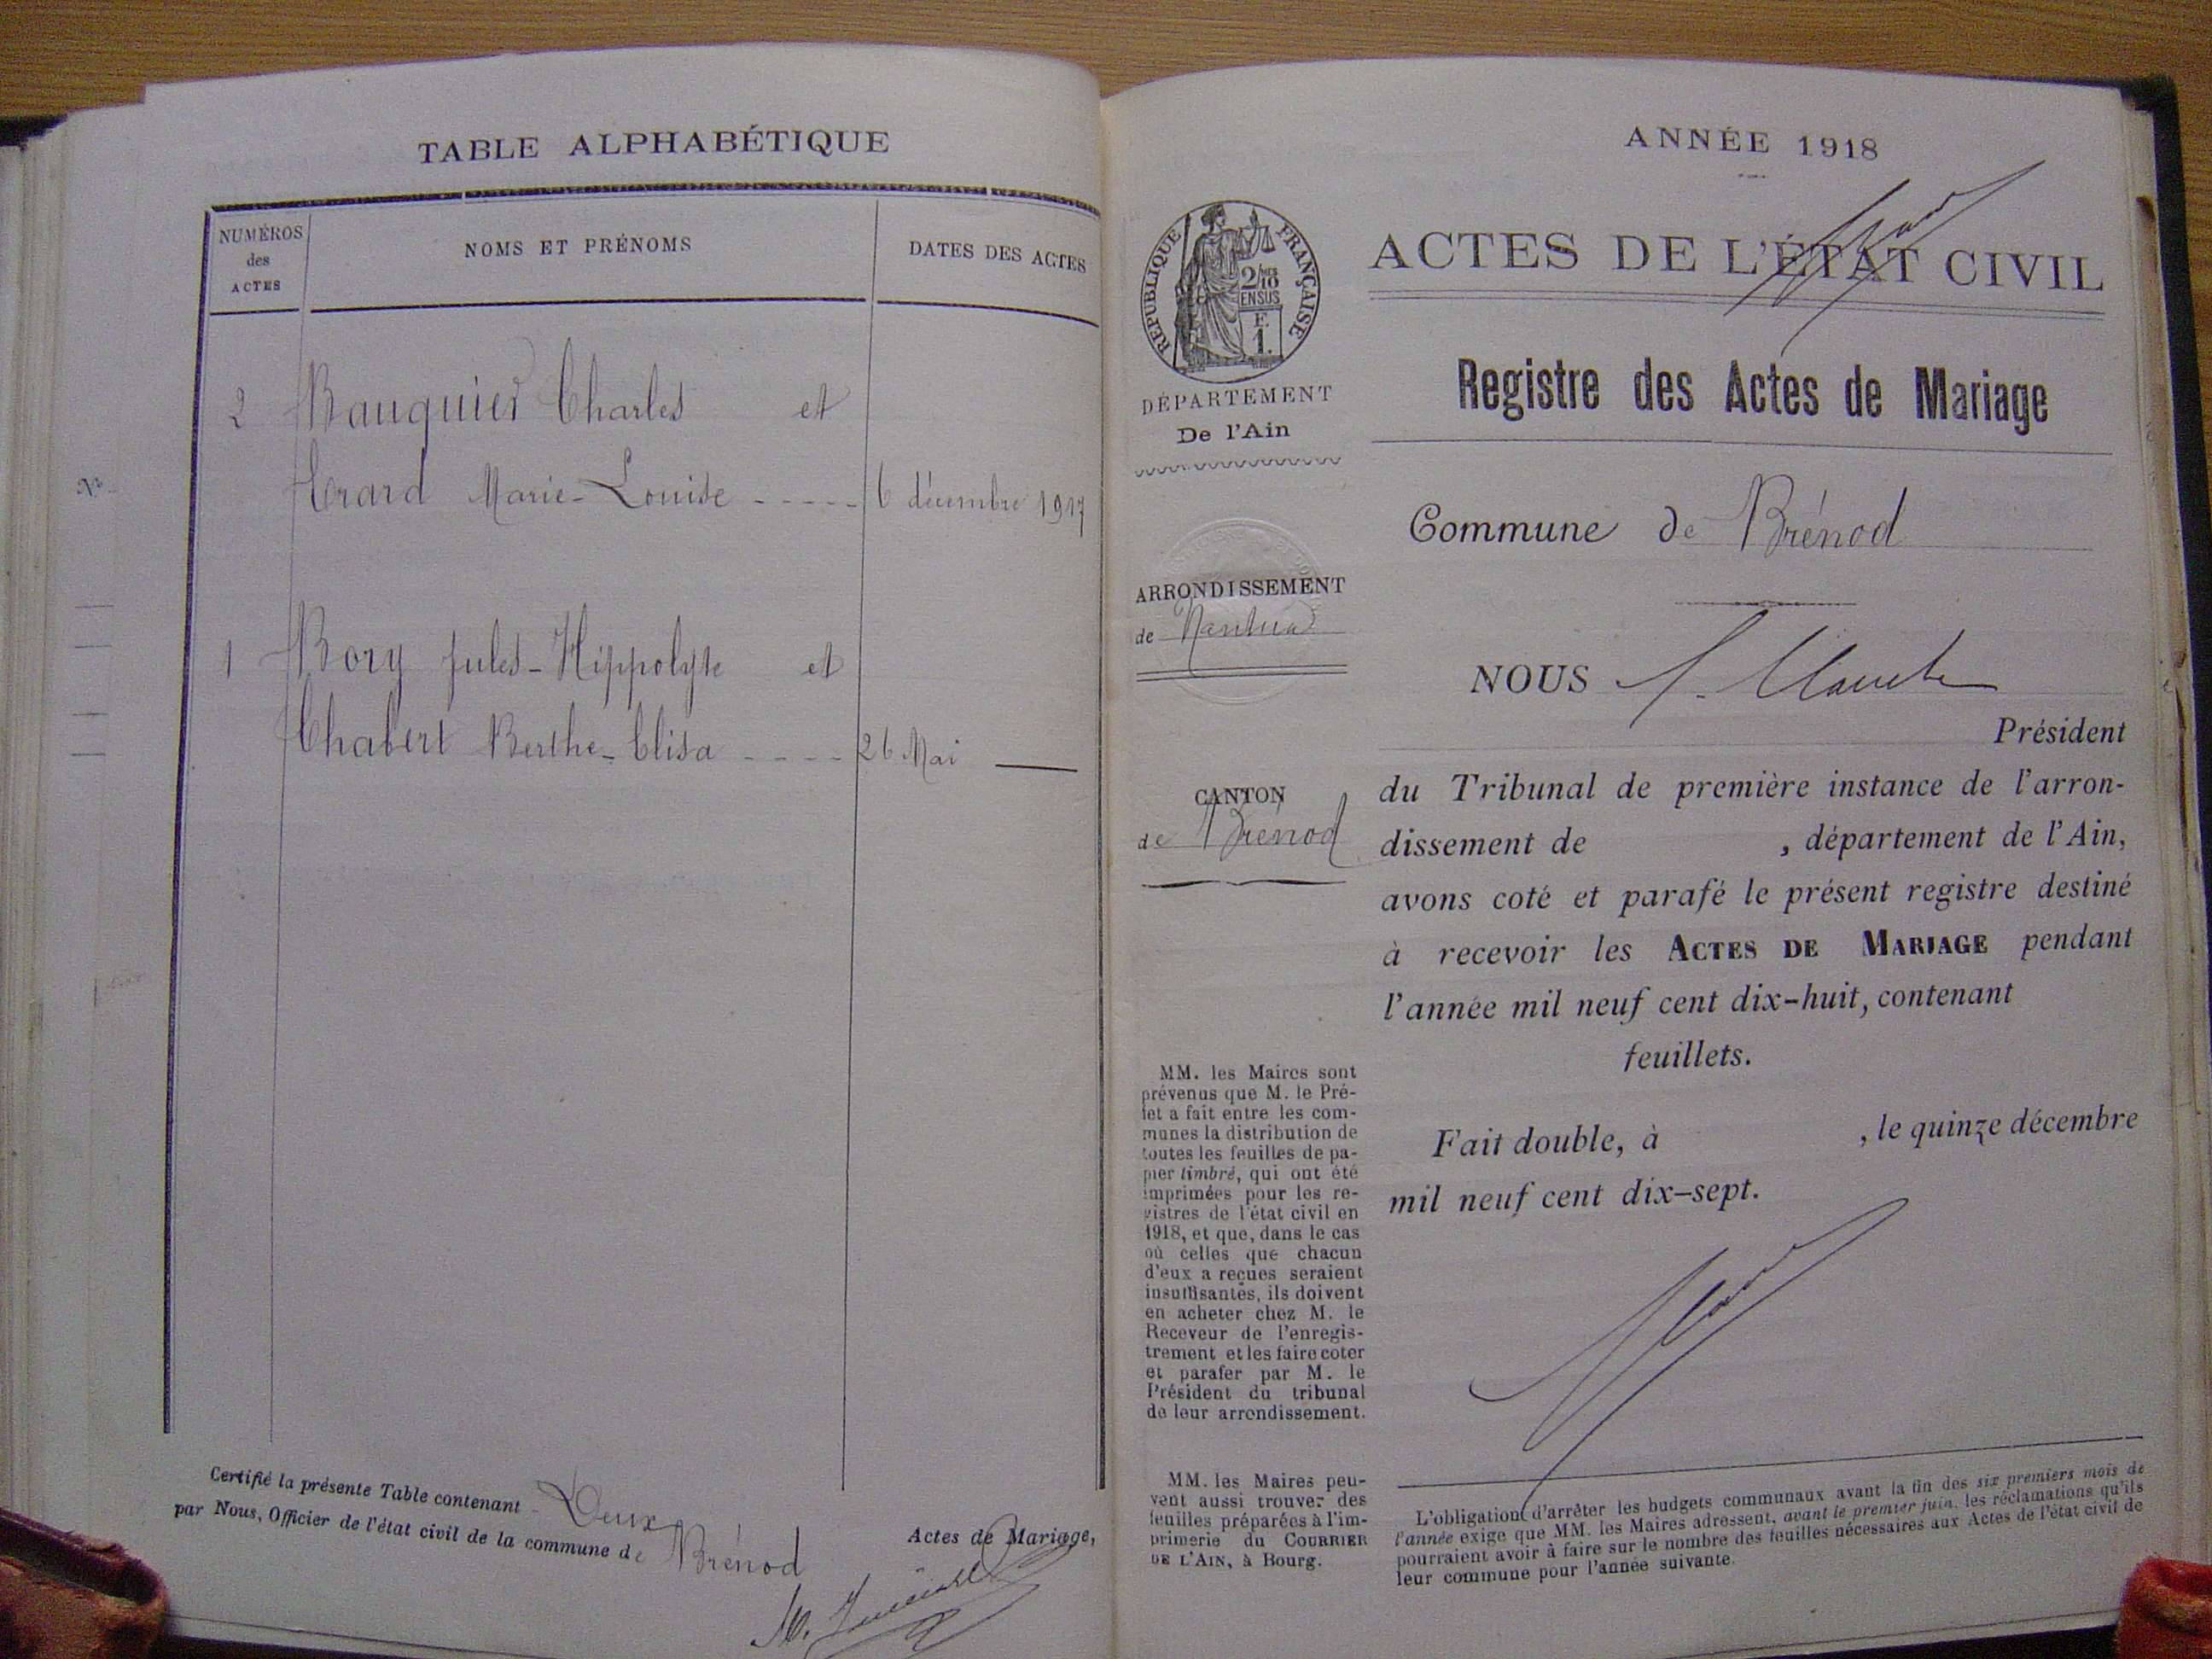 TABLE ALPHABÉTIQUE
NUMÉROS
des
ACTES
NOMS ET PRÉNOMS
DATES DES ACTES
2 Bauquier Charles et
Erard Marie-Louise ----- 6 décembre 1917
1 Bory Jules-Hippolyte et
Chabert Berthe-Elisa ---- 26 Mai —
Certifié la présente Table contenant Deux
Actes de Mariage,
par Nous, Officier de l'état civil de la commune de Brénod
ANNÉE 1918
ACTES DE L'ÉTAT CIVIL
RÉPUBLIQUE FRANÇAISE
2/10
EN SUS
F.
1.
DÉPARTEMENT
De l'Ain
Registre des Actes de Mariage
Commune de Brénod
ARRONDISSEMENT
de Nantua
NOUS
Président
CANTON
de Brénod
du Tribunal de première instance de l'arron-
dissement de , département de l'Ain,
avons coté et parafé le présent registre destiné
à recevoir les ACTES DE MARIAGE pendant
l'année mil neuf cent dix-huit, contenant
feuillets.
Fait double, à , le quinze décembre
mil neuf cent dix-sept.
MM. les Maires sont
prévenus que M. le Pré-
fet a fait entre les com-
munes la distribution de
toutes les feuilles de pa-
pier timbré, qui ont été
imprimées pour les re-
gistres de l'état civil en
1918, et que, dans le cas
où celles que chacun
d'eux a reçues seraient
insuffisantes, ils doivent
en acheter chez M. le
Receveur de l'enregis-
trement et les faire coter
et parafer par M. le
Président du tribunal
de leur arrondissement.
MM. les Maires peu-
vent aussi trouver des
feuilles préparées à l'im-
primerie du COURRIER
DE L'AIN, à Bourg.
L'obligation d'arrêter les budgets communaux avant la fin des six premiers mois de
l'année exige que MM. les Maires adressent, avant le premier juin, les réclamations qu'ils
pourraient avoir à faire sur le nombre des feuilles nécessaires aux Actes de l'état civil de
leur commune pour l'année suivante.